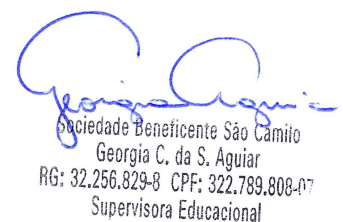 Georgia Aguiar
Sociedade Beneficente São Camilo
Georgia C. da S. Aguiar
RG: 32.256.829-8 CPF: 322.789.808-07
Supervisora Educacional